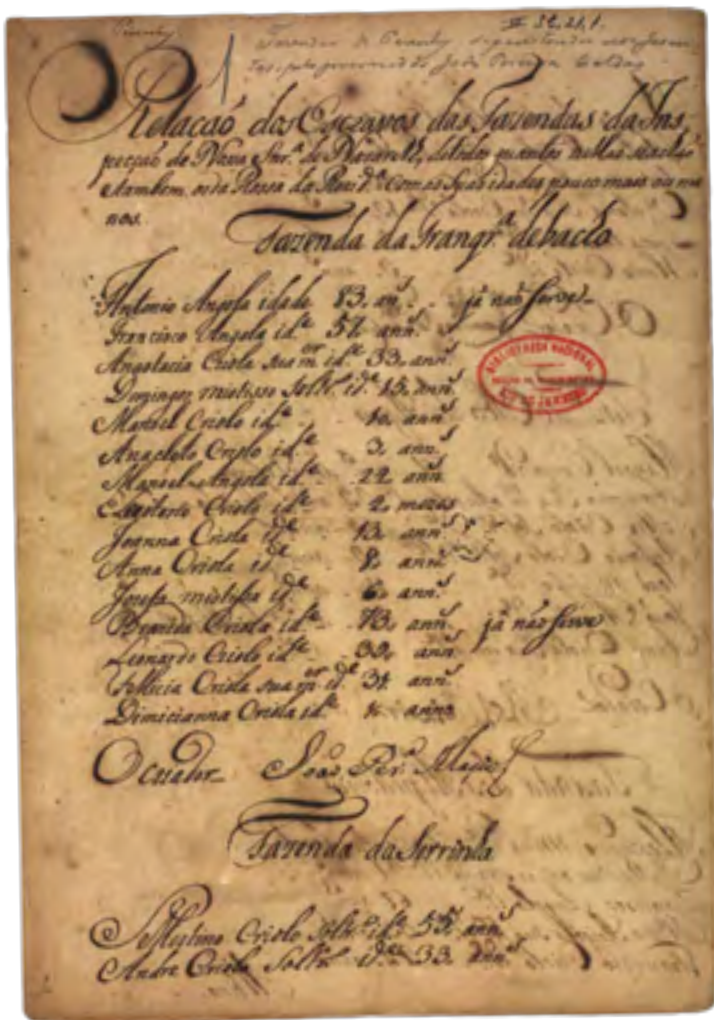 II-32,21,1.
Fazendas do Piauhy, sequestradas aos Jesui
tas pelo governador João Pereira Caldas
Relacaõ dos Escravos das Fazendas da Ins
pecçaõ de Nossa Snr.ª de Nazareth,
e tambem os da Rossa da com as suas idades pouco mais ou me
nos.
Fazenda da Grangr.ª debacho
Antonio Angola idade 83. ann.s já naõ serve
Francisco Angola id.e 57. ann.s
Anastacia Criola sua m.er id.e 53. ann.s
Domingos mistisso Solt.ro id.e 15. ann.s
Manoel Criolo id.e ann.s
Anacleto Criolo id.e 3. ann.s
Manoel Angola id.e 22. ann.s
Criolo id.e 2. mezes
Joanna Criola id.e 13. ann.s
Anna Criola id.e 8. ann.s
Josefa mistissa id.e 6. ann.s
Criola id.e 73. ann.s já naõ serve
Leonardo Criolo id.e ann.s
Fellicia Criola sua m.er id.e 31. ann.s
Dimicianna Criola id.e
O criador João Per.ª
Fazenda da Serrinha
Criolo Solt.ro id.e 55. ann.s
Andre Criolo Solt.ro id.e 33. ann.s
BIBLIOTHECA NACIONAL
RIO DE JANEIRO